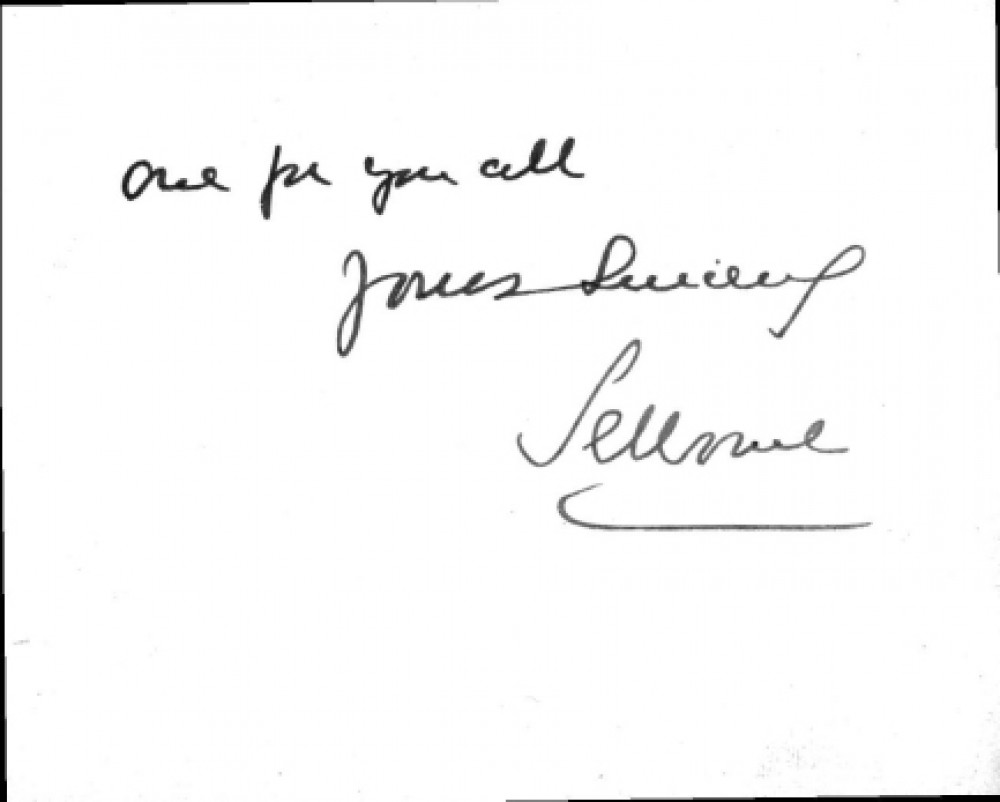 One for you all
Yours Sincerely
Selborne